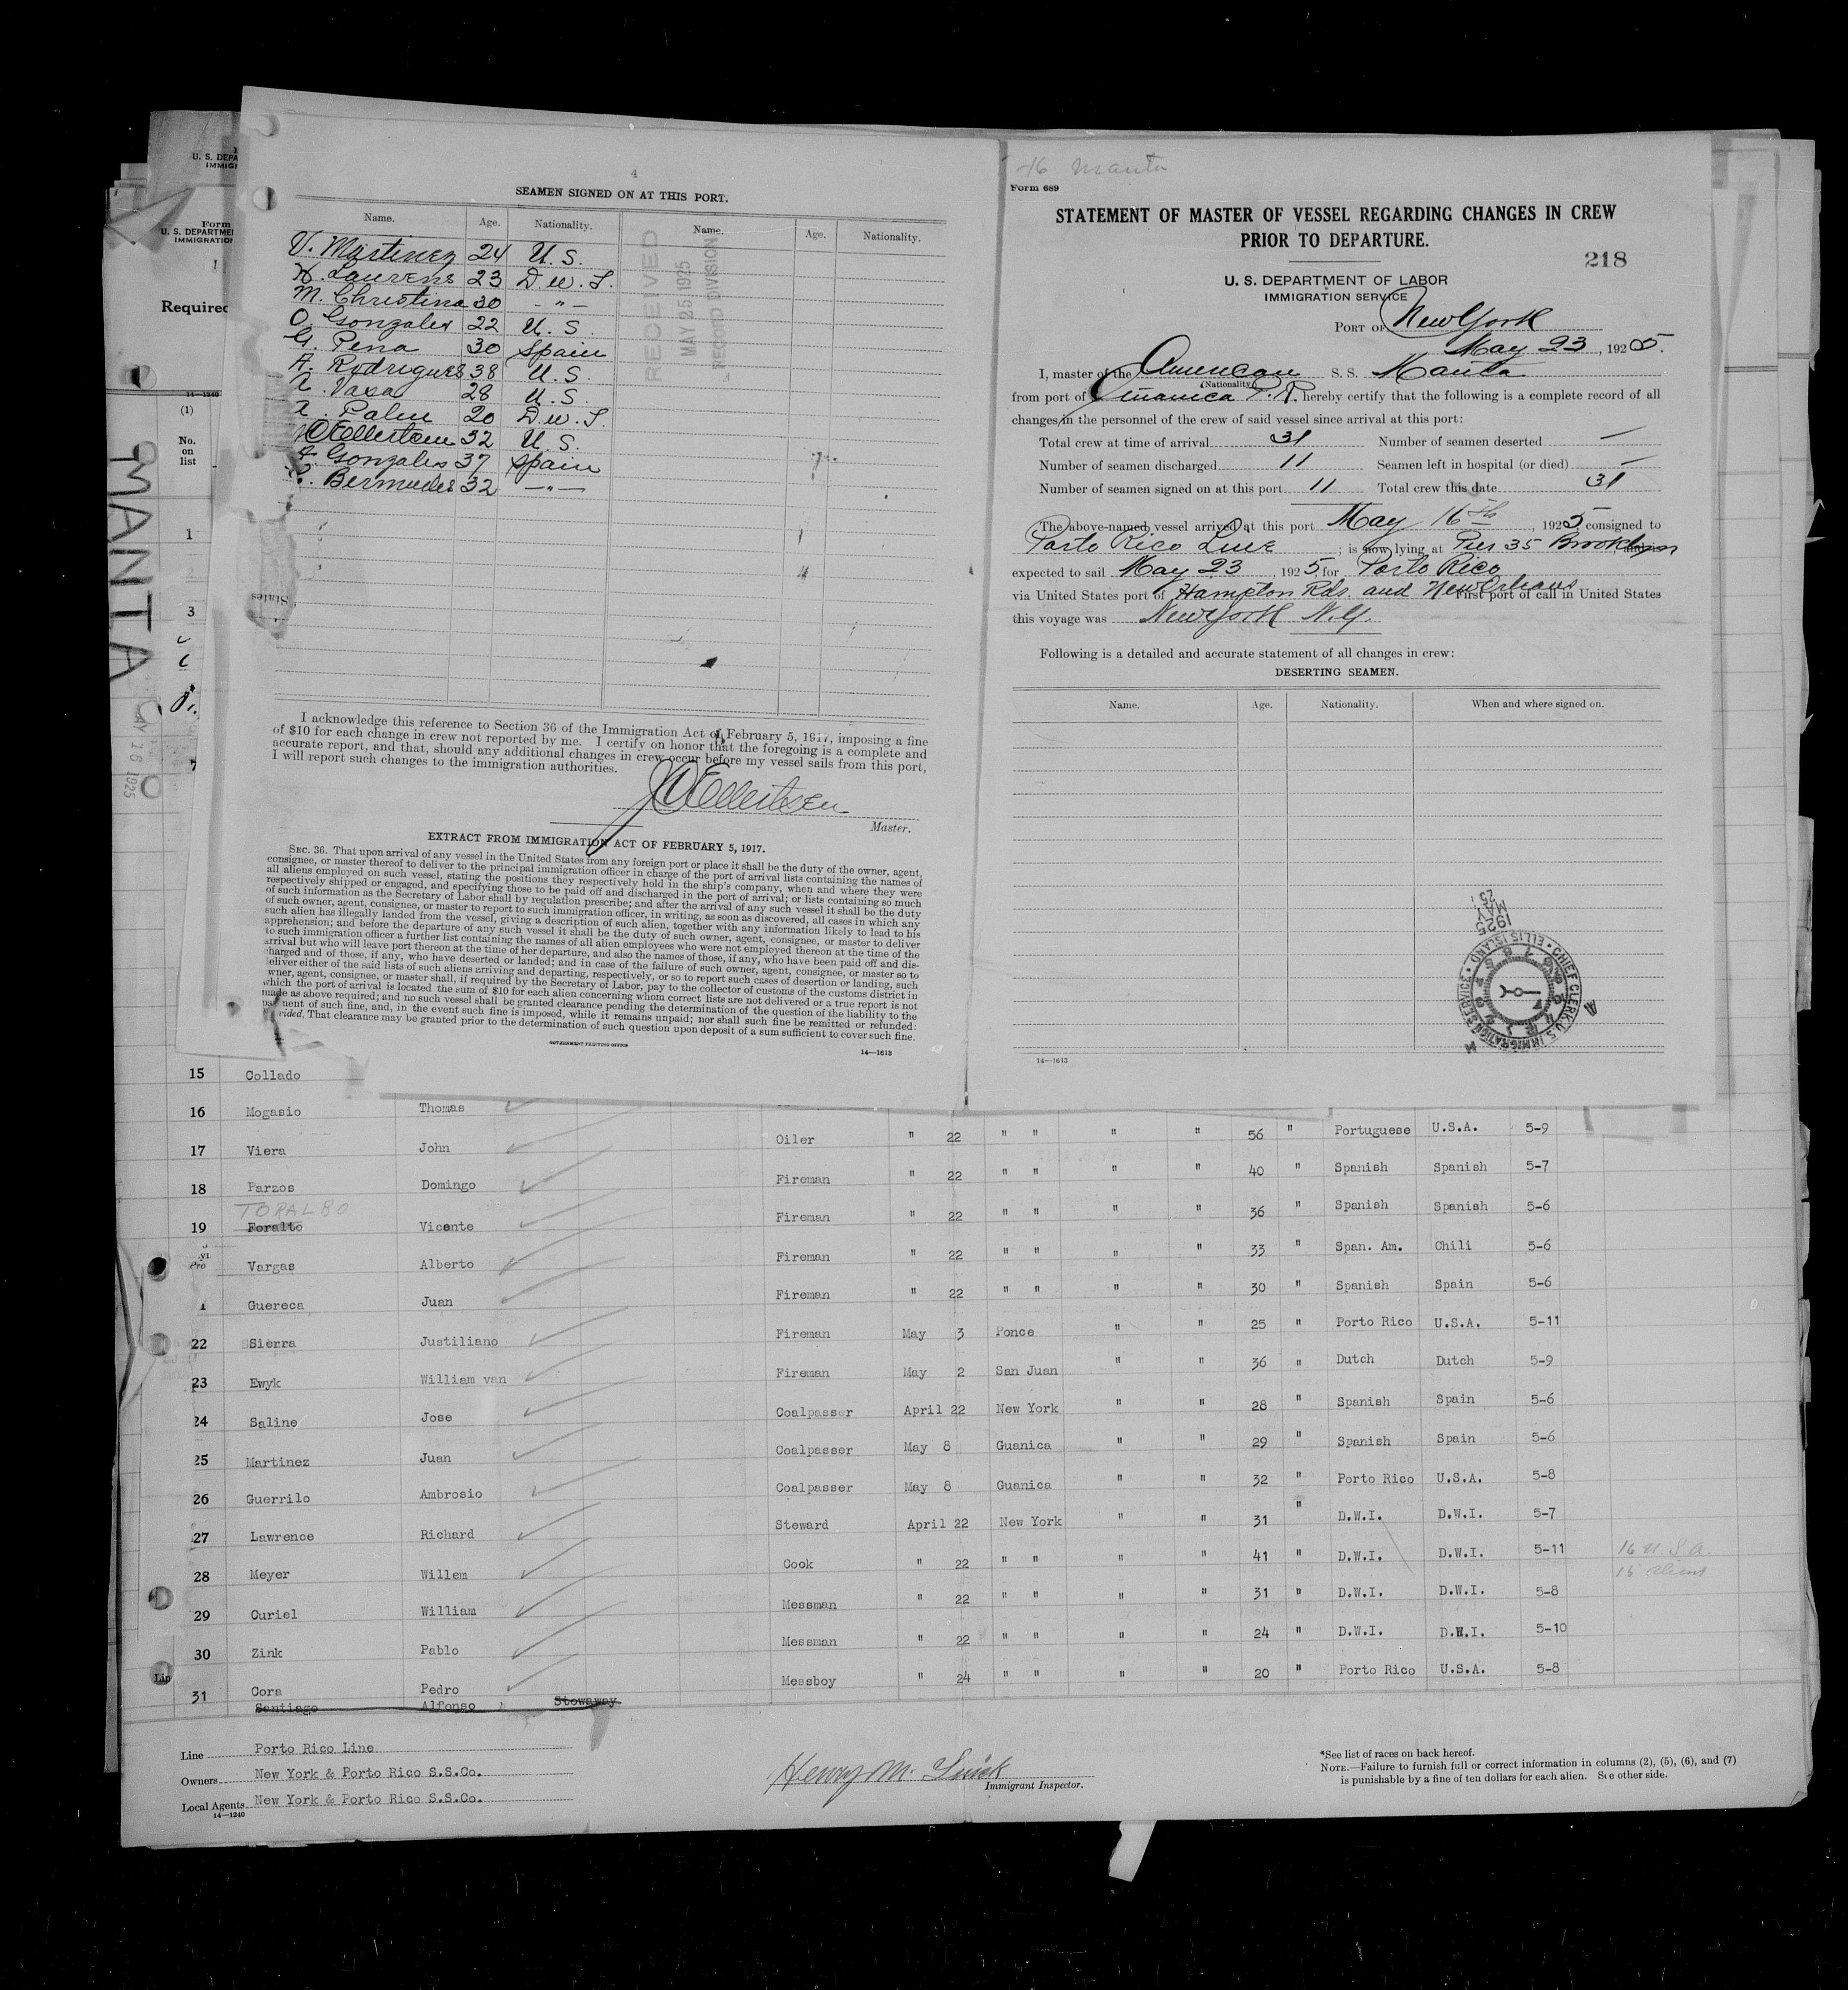 U. S. DEPA
IMMIGI
Form
U. S. DEPARTMEI
IMMIGRATION
Required
14—1240
(1)
No.
on
list
1
3
7
MANTA
MAY 16 1925
4
SEAMEN SIGNED ON AT THIS PORT.
Name. Age. Nationality. Name. Age. Nationality.
V. Martinez 24 U. S.
H. Laurens 23 D. W. I.
M. Christina 30 - " -
O. Gonzales 22 U. S.
G. Pena 30 Spain
A. Rodrigues 38 U. S.
28 U. S.
A. Palm 20 D. W. I.
JO Ellertsen 32 U. S.
F. Gonzales 37 Spain
Bermudes 32 - " -
RECEIVED
MAY 25 1925
RECORD DIVISION
States
I acknowledge this reference to Section 36 of the Immigration Act of February 5, 1917, imposing a fine
of $10 for each change in crew not reported by me. I certify on honor that the foregoing is a complete and
accurate report, and that, should any additional changes in crew occur before my vessel sails from this port,
I will report such changes to the immigration authorities.
JO Ellertsen
Master.
EXTRACT FROM IMMIGRATION ACT OF FEBRUARY 5, 1917.
SEC. 36. That upon arrival of any vessel in the United States from any foreign port or place it shall be the duty of the owner, agent,
consignee, or master thereof to deliver to the principal immigration officer in charge of the port of arrival lists containing the names of
all aliens employed on such vessel, stating the positions they respectively hold in the ship's company, when and where they were
respectively shipped or engaged, and specifying those to be paid off and discharged in the port of arrival; or lists containing so much
of such information as the Secretary of Labor shall by regulation prescribe; and after the arrival of any such vessel it shall be the duty
of such owner, agent, consignee, or master to report to such immigration officer, in writing, as soon as discovered, all cases in which any
such alien has illegally landed from the vessel, giving a description of such alien, together with any information likely to lead to his
apprehension; and before the departure of any such vessel it shall be the duty of such owner, agent, consignee, or master to deliver
to such immigration officer a further list containing the names of all alien employees who were not employed thereon at the time of the
arrival but who will leave port thereon at the time of her departure, and also the names of those, if any, who have been paid off and dis-
charged and of those, if any, who have deserted or landed; and in case of the failure of such owner, agent, consignee, or master so to
eliver either of the said lists of such aliens arriving and departing, respectively, or so to report such cases of desertion or landing, such
wner, agent, consignee, or master shall, if required by the Secretary of Labor, pay to the collector of customs of the customs district in
which the port of arrival is located the sum of $10 for each alien concerning whom correct lists are not delivered or a true report is not
made as above required; and no such vessel shall be granted clearance pending the determination of the question of the liability to the
pa ment of such fine, and, in the event such fine is imposed, while it remains unpaid; nor shall such fine be remitted or refunded:
vided, That clearance may be granted prior to the determination of such question upon deposit of a sum sufficient to cover such fine.
GOVERNMENT PRINTING OFFICE
14—1613
16 Manta
Form 689
STATEMENT OF MASTER OF VESSEL REGARDING CHANGES IN CREW
PRIOR TO DEPARTURE.
218
U. S. DEPARTMENT OF LABOR
IMMIGRATION SERVICE
PORT OF New York
May 23, 1925.
I, master of the American S. S. Manta
(Nationality)
from port of Guanica P. R. hereby certify that the following is a complete record of all
changes in the personnel of the crew of said vessel since arrival at this port:
Total crew at time of arrival 31 Number of seamen deserted —
Number of seamen discharged 11 Seamen left in hospital (or died) —
Number of seamen signed on at this port 11 Total crew this date 31
The above-named vessel arrived at this port May 16th, 1925 consigned to
Porto Rico Line; is now lying at Pier 35 Brooklyn
expected to sail May 23, 1925, for Porto Rico
via United States port of Hampton Rds. and New Orleans First port of call in United States
this voyage was New York N.Y.
Following is a detailed and accurate statement of all changes in crew:
DESERTING SEAMEN.
Name. Age. Nationality. When and where signed on.
1925
MAY
25
CHIEF CLERK, U.S. IMMIGRATION SERVICE • ELLIS ISLAND •
14—1613
15 Collado
16 Mogasio Thomas
17 Viera John Oiler " 22 " " " " 56 " Portuguese U.S.A. 5-9
18 Parzos Domingo Fireman " 22 " " " " 40 " Spanish Spanish 5-7
TORALBO
19 Foralto Vicente Fireman " 22 " " " " 36 " Spanish Spanish 5-6
Pro Vargas Alberto Fireman " 22 " " " " 33 " Span. Am. Chili 5-6
1 Guereca Juan Fireman " 22 " " " " 30 " Spanish Spain 5-6
22 Sierra Justiliano Fireman May 3 Ponce " " 25 " Porto Rico U.S.A. 5-11
23 Ewyk William van Fireman May 2 San Juan " " 36 " Dutch Dutch 5-9
24 Saline Jose Coalpasser April 22 New York " " 28 " Spanish Spain 5-6
25 Martinez Juan Coalpasser May 8 Guanica " " 29 " Spanish Spain 5-6
26 Guerrilo Ambrosio Coalpasser May 8 Guanica " " 32 " Porto Rico U.S.A. 5-8
27 Lawrence Richard Steward April 22 New York " " 31 " D.W.I. D.W.I. 5-7
28 Meyer Willem Cook " 22 " " " " 41 " D.W.I. D.W.I. 5-11
16 U.S.A.
15 Aliens
29 Curiel William Messman " 22 " " " " 31 " D.W.I. D.W.I. 5-8
30 Zink Pablo Messman " 22 " " " " 24 " D.W.I. D.W.I. 5-10
31 Cora Pedro Messboy " 24 " " " " 20 " Porto Rico U.S.A. 5-8
Santiago Alfonso Stowaway
Lin
Line Porto Rico Line
Owners New York & Porto Rico S.S.Co.
Local Agents New York & Porto Rico S.S.Co.
14—1240
Henry M.
Immigrant Inspector.
*See list of races on back hereof.
NOTE.—Failure to furnish full or correct information in columns (2), (5), (6), and (7)
is punishable by a fine of ten dollars for each alien. See other side.